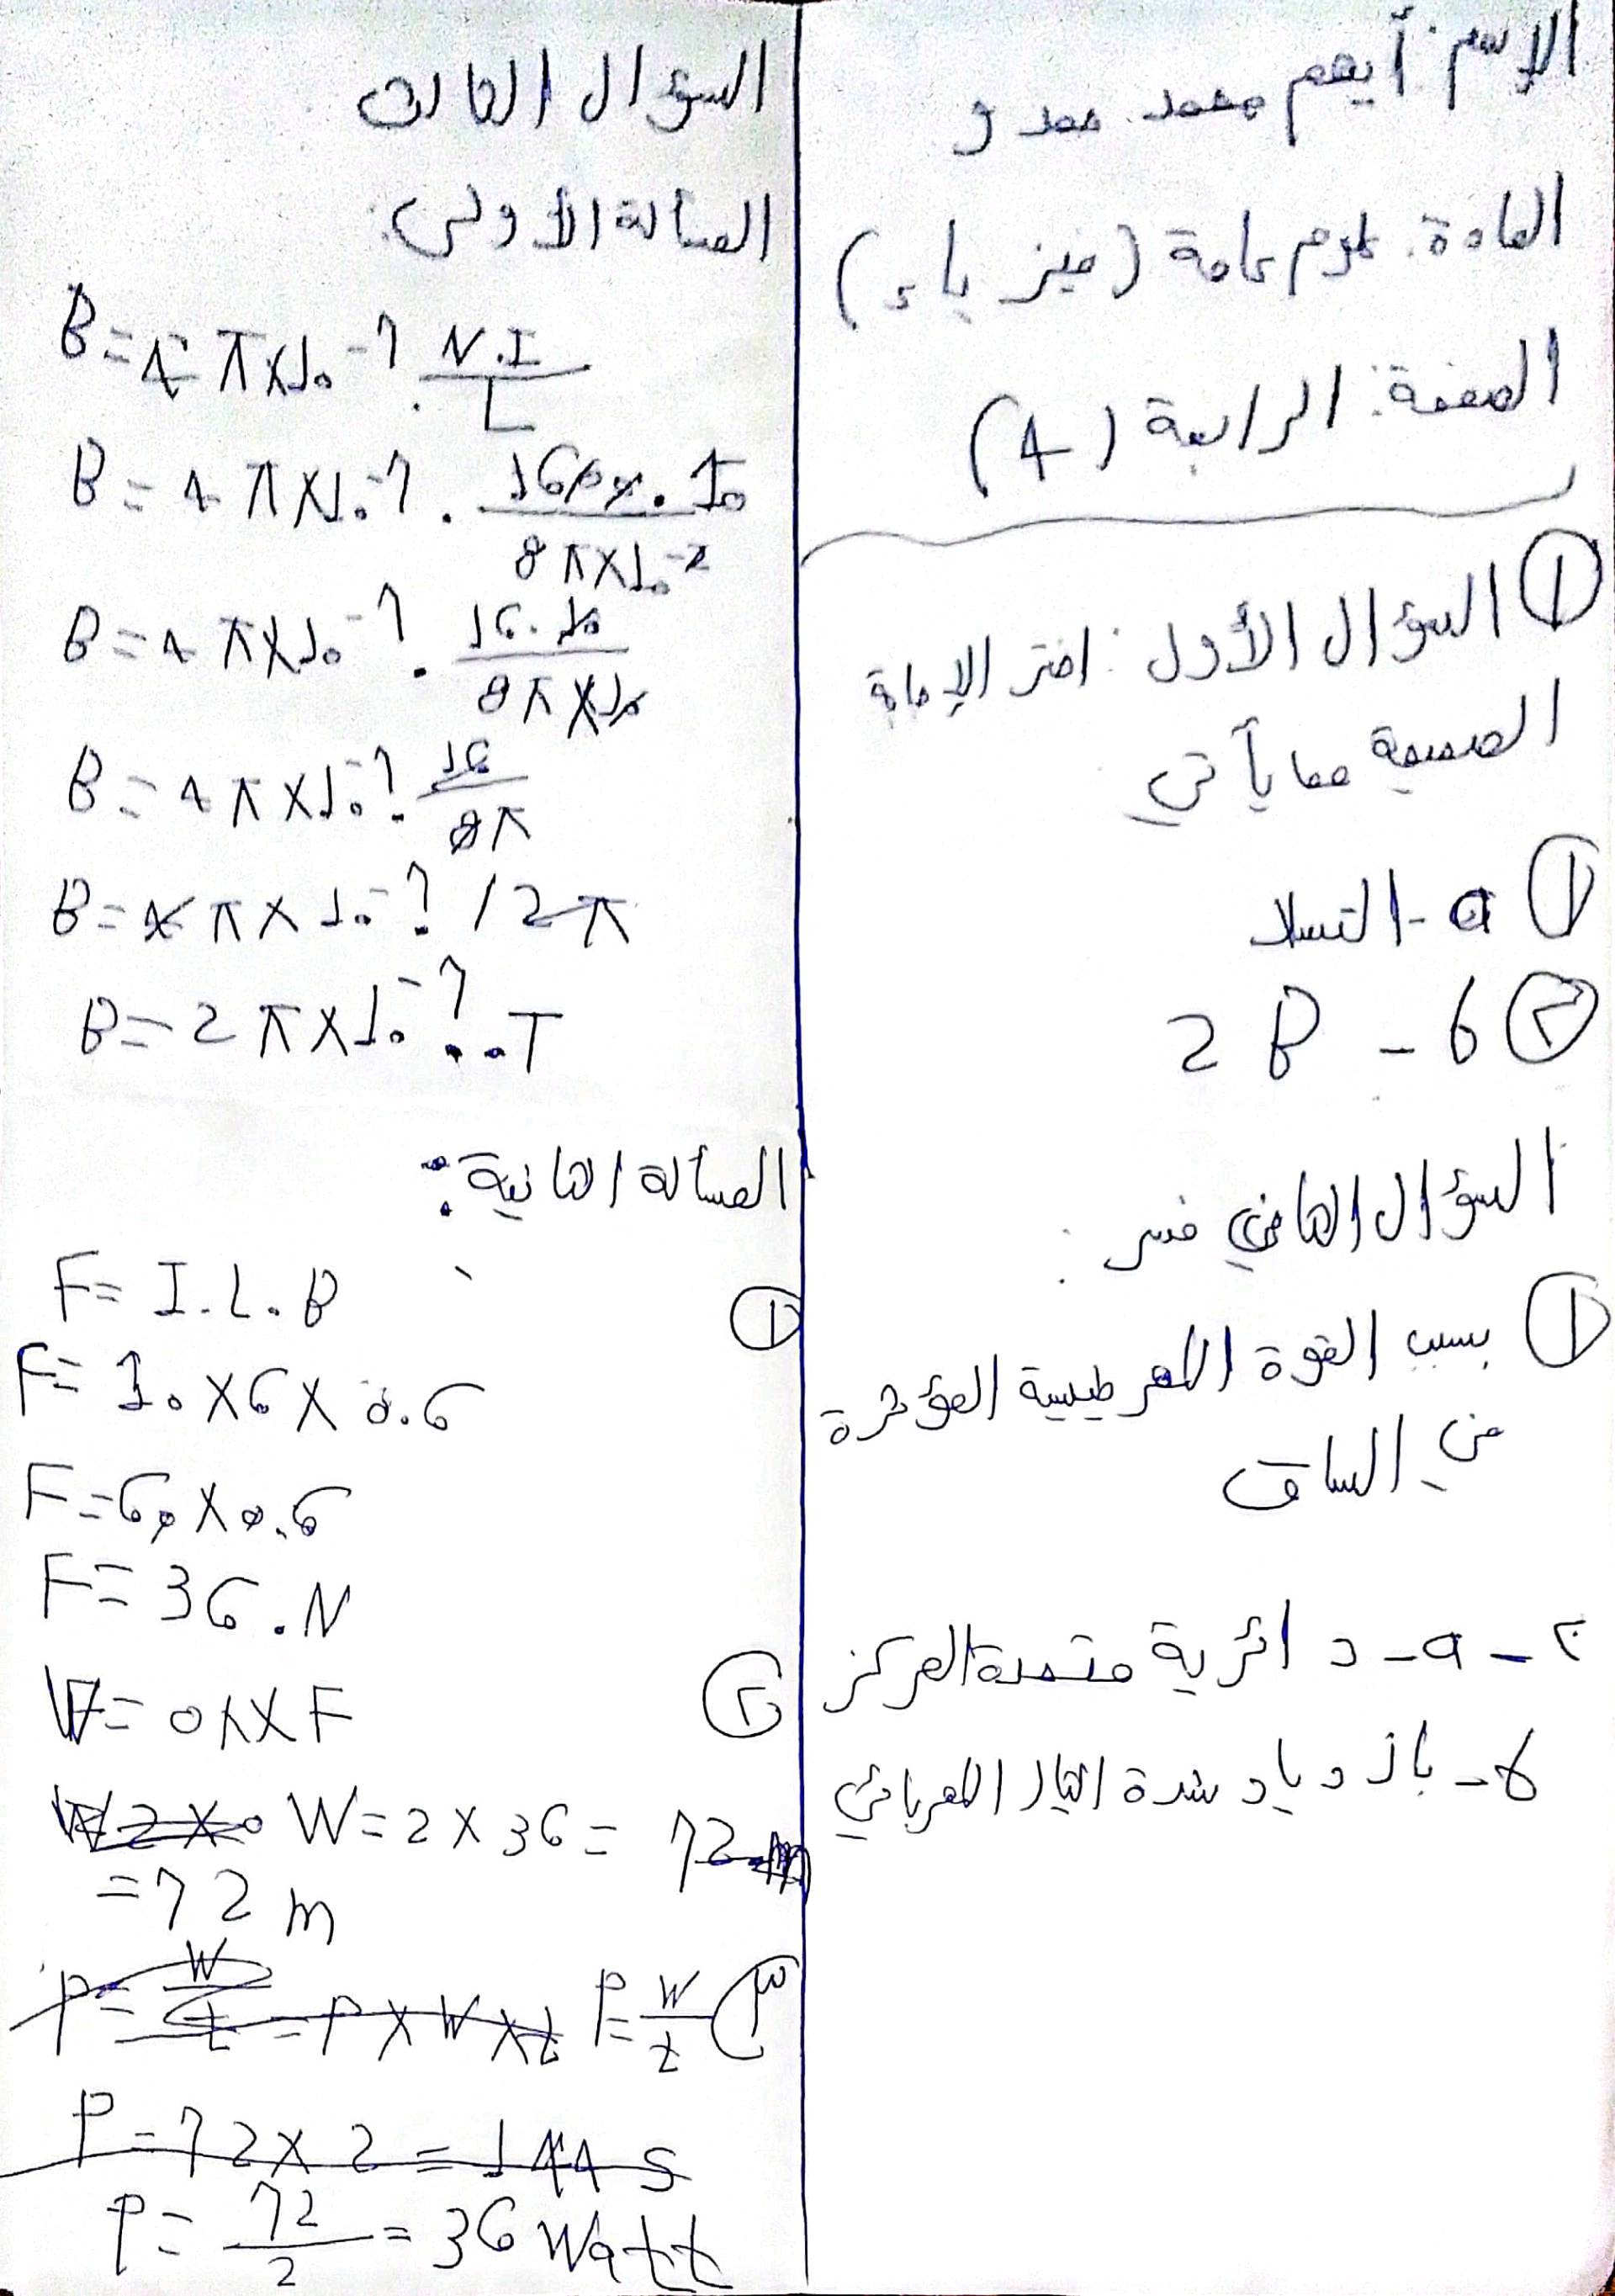 الإسم: أيهم محمد حمدو
المادة: علوم عامة (فيزياء)
الصفحة: الرابعة (4)
① السؤال الأول: اختر الإجابة
الصحيحة مما يأتي
① a - التسلا
② b - 2B
السؤال الثاني فسر:
① بسبب القوة الكهرطيسية المؤثرة
في الساق
٢ - a - دائرية متحدة المركز
b - بازدياد شدة التيار الكهربائي
السؤال الثالث
المسألة الأولى:
B = 4π×10⁻⁷ . N.I / L
B = 4π×10⁻⁷ . 1600 . 10 / 8π×10⁻²
B = 4π×10⁻⁷ . 16.10 / 8π×10
B = 4π×10⁻⁷ . 16 / 8π
B = 4π×10⁻⁷ / 2π
B = 2π×10⁻⁷ . T
المسألة الثانية:
① F = I.L.B
F = 10×6×0.6
F = 60×0.6
F = 36.N
② W = ΔX×F
W = 2×36 =
= 72 m
③ P = W / t
P = 72 / 2 = 36 Watt